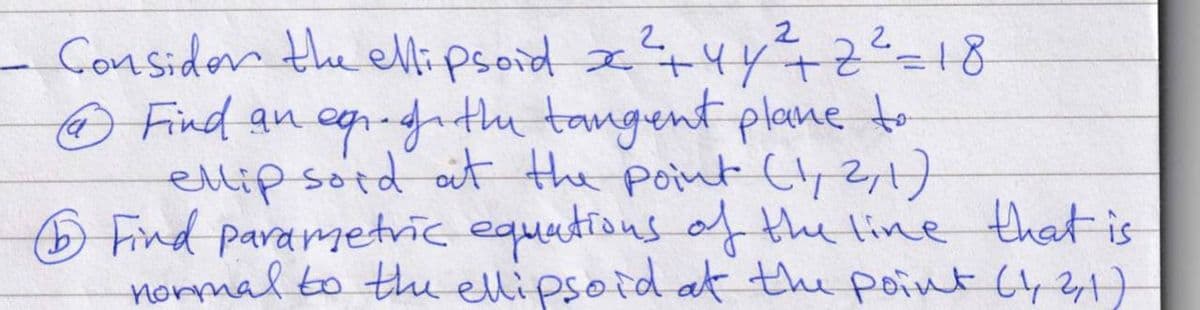 - Consider the ellipsoid x²+4y²+z²=18
ⓐ Find an eq. of the tangent plane to
ellipsoid at the point (1,2,1)
ⓑ Find parametric equations of the line that is
normal to the ellipsoid at the point (1,2,1)